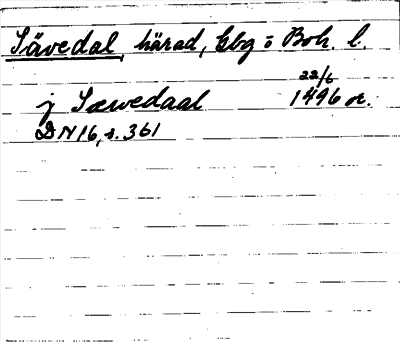 Sävedal, härad, Gbg o Boh. l.
22/6
j Sæwedaal 1496 or.
DN 16, s. 361